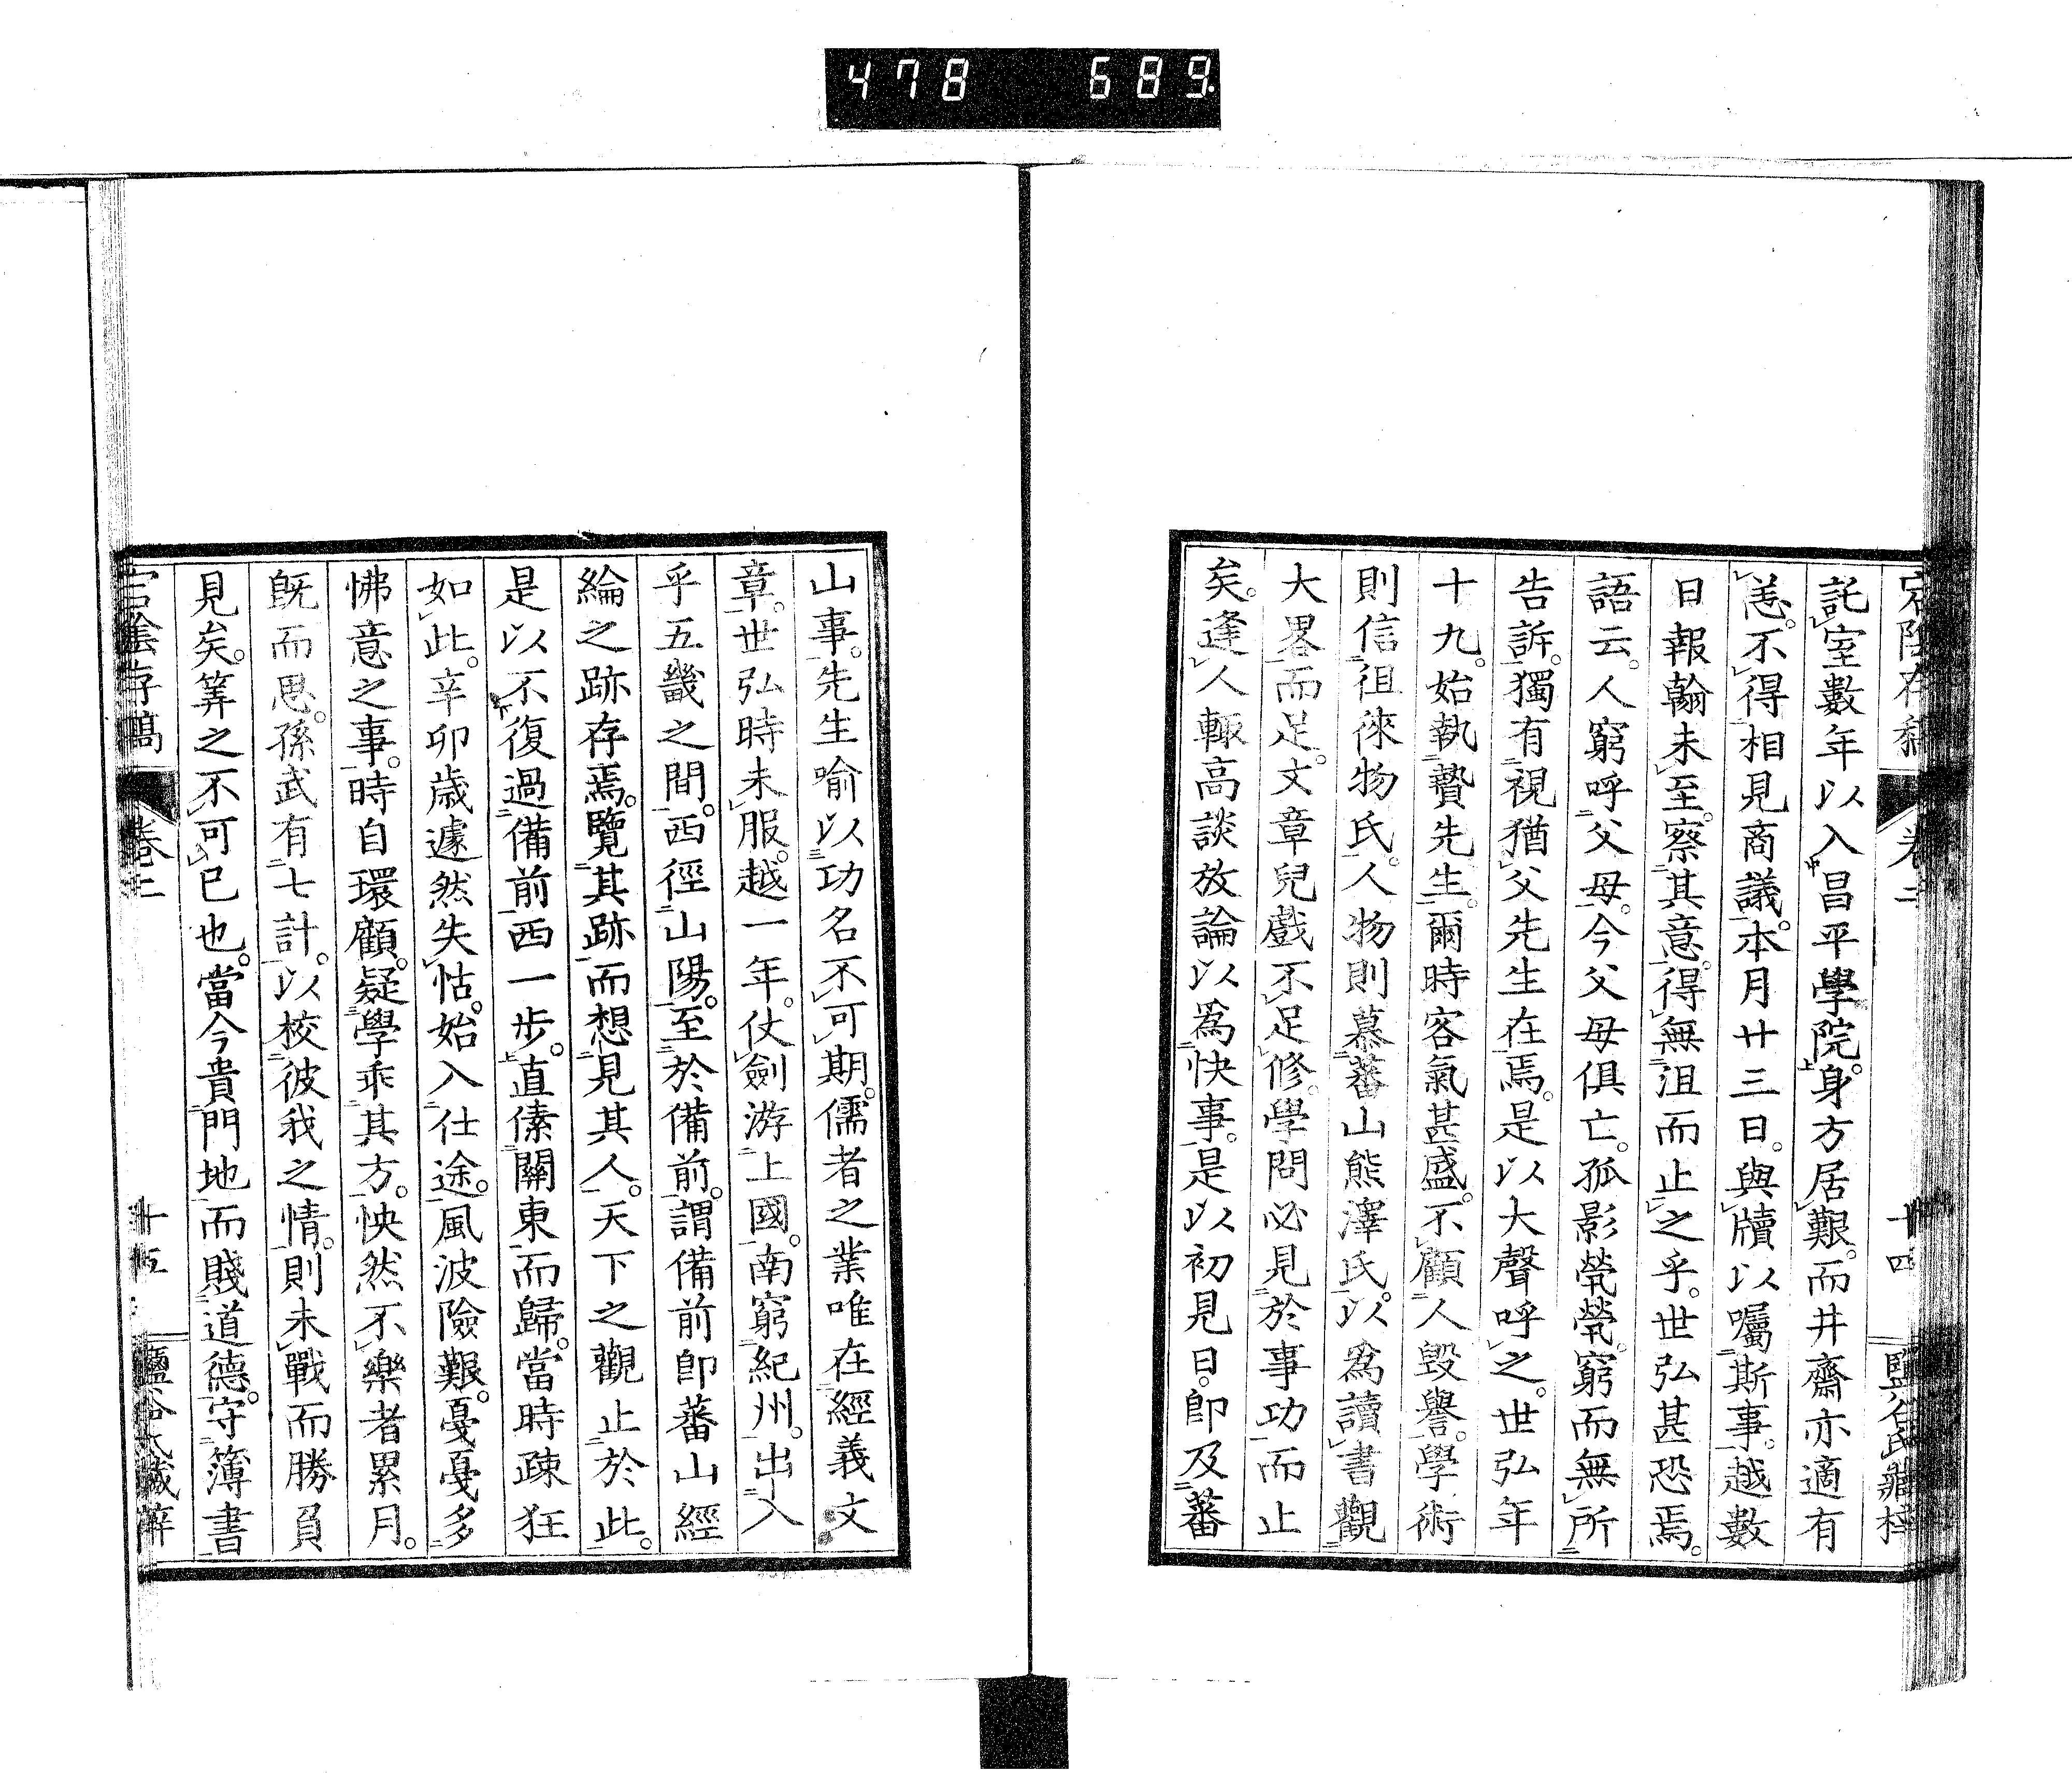 478 689.
宕陰存稿 卷二 十四 鹽谷氏藏梓
託室數年以入昌平學院身方居艱。而井齋亦適有
恙。不得相見商議。本月廿三日。與牘以囑斯事。越數
日報翰未至。察其意。得無沮而止之乎。世弘甚恐焉。
語云。人窮呼父母。今父母俱亡。孤影煢煢。窮而無所
告訴。獨有視猶父先生在焉。是以大聲呼之。世弘年
十九。始執贄先生。爾時客氣甚盛。不顧人毀譽。學術
則信徂徠物氏。人物則慕蕃山熊澤氏。以爲讀書觀
大畧而足。文章兒戲不足修。學問必見於事功而止
矣。逢人輙高談放論以爲快事。是以初見日。卽及蕃
山事。先生喻以功名不可期。儒者之業唯在經義文
章。世弘時未服。越一年。仗劍游上國。南窮紀州。出入
乎五畿之間。西徑山陽。至於備前。謂備前卽蕃山經
綸之跡存焉。覽其跡而想見其人。天下之觀止於此。
是以不復過備前西一步。直傃關東而歸。當時疎狂
如此。辛卯歲遽然失怙。始入仕途。風波險艱。戞戞多
怫意之事。時自環顧。疑學乖其方。怏然不樂者累月。
旣而思。孫武有七計。以校彼我之情。則未戰而勝負
見矣。筭之不可已也。當今貴門地而賤道德。守簿書
宕陰存稿 卷二 十五 鹽谷氏藏梓